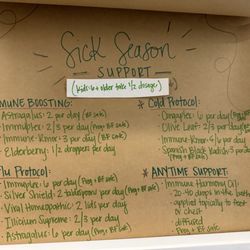 Sick Season
SUPPORT
(kids 6+ older take 1/2 dosage)
MMUNE BOOSTING:
Astragalus: 2 per day (BF safe)
Immuplex: 2/3 per day (Preg + BF safe)
Immune-Kner: 3 per day (BF safe)
Elderberry: 1/2 droppers per day
* Cold Protocol:
Congaplex: 6 per day (Preg + BF safe)
Olive Leaf: 2/3 per day
Immune-Kner: 6 per day
Spanish Black Radish: 3 per day
Flu Protocol:
Immuplex: 6 per day (Preg + BF safe)
Silver Shield: 2 tablespoons per day
Viral Homeopathic: 2 lids per day
Illicium Supreme: 2/3 per day
Astragalus: 6 per day (Preg + BF safe)
* ANYTIME SUPPORT:
Immune Harmony Oil:
20-40 drops in the bath
applied topically to feet
or chest
diffused
Preg + BF safe